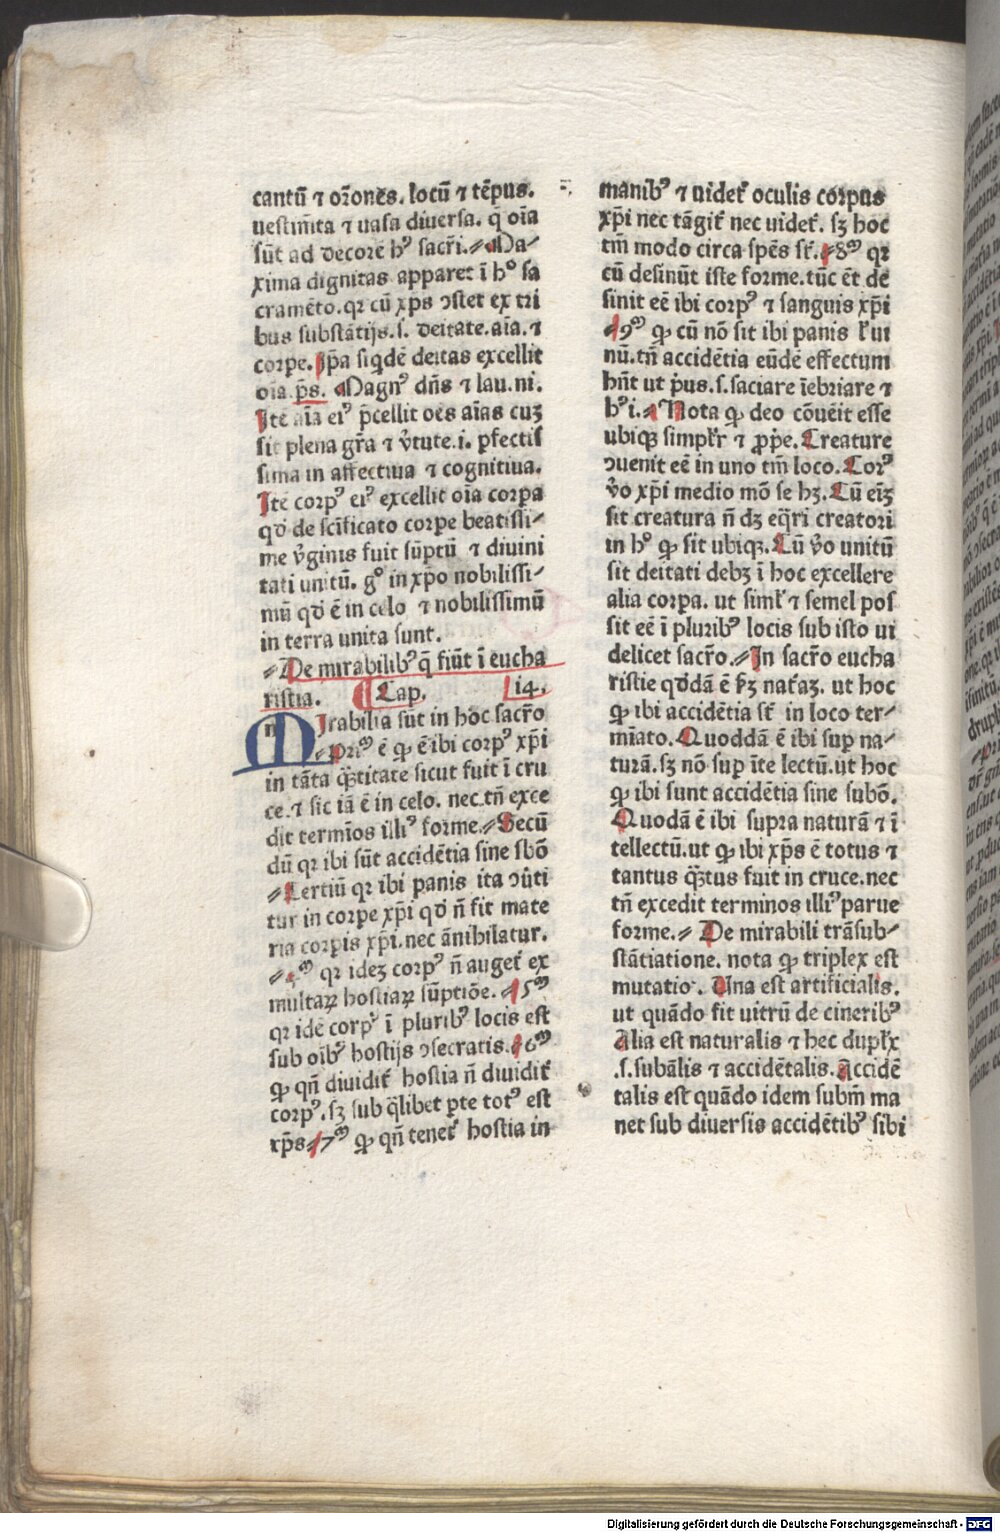 cantū ⁊ or̄oneȝ. locū ⁊ tēpus.
uestim̄ta ⁊ uasa diuersa. q̄ oīa
sūt ad decorē hꝰ sacr̄i.⸗Ma⸗
xima dignitas apparet ī hͦ sa
cramēto. qr cū xp̄s ↄstet ex tri
bus substātijs. ſ. deitate. aīa. ⁊
corpe. Ip̄a siqͥdē deitas excellit
oīa. p̄s. Magnꝰ dn̄s ⁊ lau. ni.
Itē aīa eiꝰ p̄cellit oēs aīas cuȝ
sit plena gr̄a ⁊ v̄tute. i. ꝑfectis
sima in affectiua ⁊ cognitiua.
Itē corpꝰ eiꝰ excellit oīa corpa
qd̄ de scīficato corpe beatissi⸗
me v̄ginis fuit sūptū ⁊ diuini
tati unitū. gͦ in xp̄o nobilissi⸗
mū qd̄ ē in celo ⁊ nobilissimū
in terra unita sunt.
⸗De mirabilibꝰ q̄ fiūt ī eucha
ristia. Cap. i4.
MIrabilia sūt in hoc sacr̄o
⸗primͫ ē ꝙ ē ibi corpꝰ xp̄i
in tāta q̄titate sicut fuit ī cru
ce. ⁊ sic iā ē in celo. nec tn̄ exce
dit termīos illiꝰ forme.⸗Secū
dū qr ibi sūt accidētia sine sb̄o
⸗Tertiū qr ibi panis ita ↄu̇ti
tur in corpe xp̄i qd̄ n̄ fit mate
ria corpis xp̄i. nec ānihilatur.
⸗4ͫ qr ideȝ corpꝰ n̄ augetͬ ex
multaꝝ hostiaꝝ sūptiōe. 5ͫ
qr idē corpꝰ ī pluribꝰ locis est
sub oībꝰ hostijs ↄsecratis. 6ͫ
ꝙ qn̄ diuiditͬ hostia n̄ diuiditͬ
corpꝰ. sȝ sub q̄libet ꝑte totꝰ est
xp̄s⸗7ͫ ꝙ qn̄ tenetͬ hostia in
manibꝰ ⁊ uidetͬ oculis corpus
xp̄i nec tāgitͬ nec uidetͬ. sȝ hoc
tm̄ modo circa sp̄es st̄.⸗8ͫ qr
cū desinūt iste forme. tūc ēt de
sinit eē ibi corpꝰ ⁊ sanguis xp̄i
⸗9ͫ ꝙ cū nō sit ibi panis ł ui
nū. tn̄ accidētia eūdē effectum
hn̄t ut p̄us. ſ. saciare īebriare ⁊
hꝰi. Nota ꝙ deo cōuēit esse
ubiqȝ simpłr ⁊ prop̄e. Creature
ↄuenit eē in uno tm̄ loco. Corꝰ
v̄o xp̄i medio mō se hȝ. Cū eīȝ
sit creatura n̄ dȝ eq̄ri creatori
in hͦ ꝙ sit ubiqȝ. Cū v̄o unitū
sit deitati debȝ ī hoc excellere
alia corpa. ut siml̄ ⁊ semel pos
sit eē ī pluribꝰ locis sub isto ui
delicet sacr̄o.⸗In sacr̄o eucha
ristie qd̄dā ē ẜȝ nat̄aȝ. ut hoc
ꝙ ibi accidētia st̄ in loco ter⸗
mīato. Quoddā ē ibi suꝑ na⸗
turā. sȝ nō suꝑ īte lectū. ut hoc
ꝙ ibi sunt accidētia sine subō.
Quodā ē ibi supra naturā ⁊ ī
tellectū. ut ꝙ ibi xp̄s ē totus ⁊
tantus q̄tus fuit in cruce. nec
tn̄ excedit terminos illiꝰ parue
forme.⸗ De mirabili trāsub⸗
stātiatione. nota ꝙ triplex est
mutatio. Una est artificialis.
ut quādo fit uitrū de cineribꝰ
Alia est naturalis ⁊ hec dupłx
.ſ. subālis ⁊ accidētalis. Accidē
talis est quādo idem subm̄ ma
net sub diuersis accidētibꝰ sibi
Digitalisierung gefördert durch die Deutsche Forschungsgemeinschaft - DFG